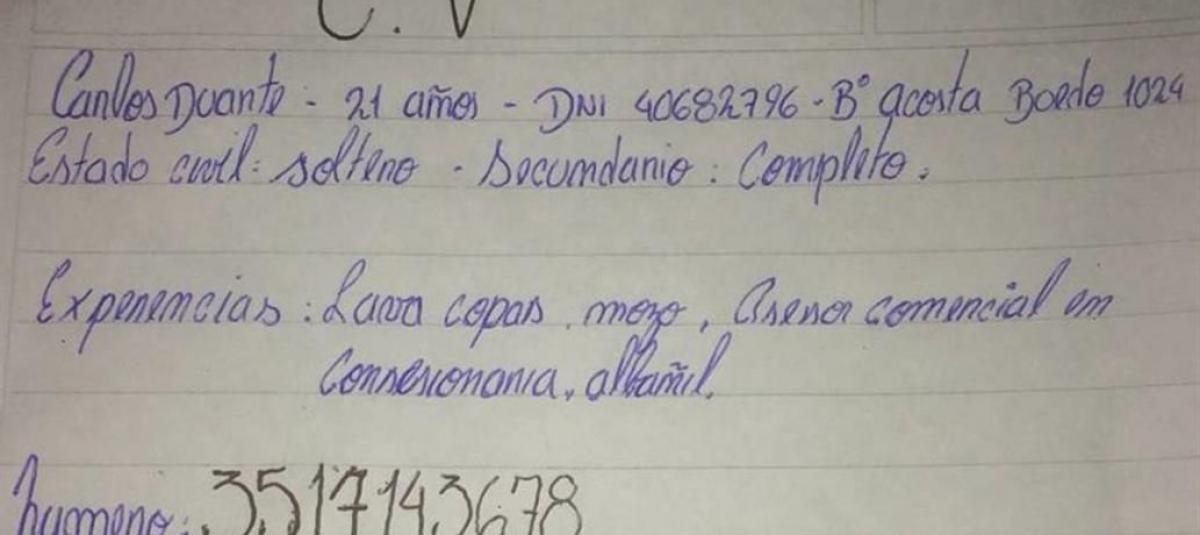 C. V
Carlos Duarte - 21 años - DNI 40682796 - B° acosta Boedo 1024
Estado civil: soltero - Secundario : Completo.
Experiencias : Lava copas, mozo, Asesor comercial en
Consesionaria, albañil.
numero: 3517143678